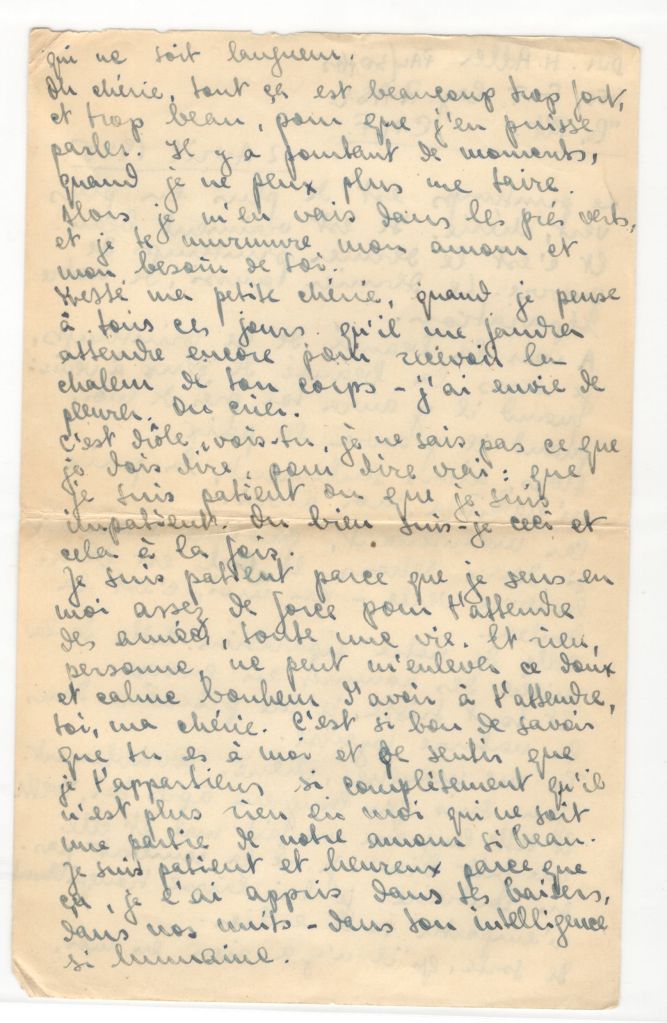 qui ne soit langueur.
Oh chérie, tout ça est beaucoup trop fort,
et trop beau, pour que j'en puisse
parler. Il y a pourtant de moments,
quand je ne peux plus me taire.
Alors je m'en vais dans les prés verts,
et je te murmure mon amour et
mon besoin de toi.
ma petite chérie, quand je pense
à tous ces jours qu'il me faudra
attendre encore pour recevoir la
chaleur de ton corps - j'ai envie de
pleurer. Ou crier.
C'est drôle, vois-tu, je ne sais pas ce que
je dois dire, pour dire vrai: que
je suis patient ou que je suis
impatient. Ou bien suis-je ceci et
cela à la fois.
Je suis patient parce que je sens en
moi assez de force pour t'attendre
des années, toute une vie. Et rien,
personne, ne peut m'enlever ce doux
et calme bonheur d'avoir à t'attendre,
toi, ma chérie. C'est si bon de savoir
que tu es à moi et de sentir que
je t'appartiens si complètement qu'il
n'est plus rien en moi qui ne soit
une partie de notre amour si beau.
Je suis patient et heureux parce que
ça, je l'ai appris dans tes baisers,
dans nos nuits - dans ton intelligence
si humaine.